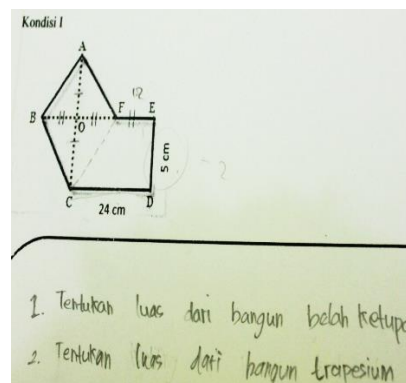 Kondisi I
A
12
F E
B O
5 cm
C D
24 cm
1. Tentukan luas dari bangun belah ketupa
2. Tentukan luas dari bangun trapesium